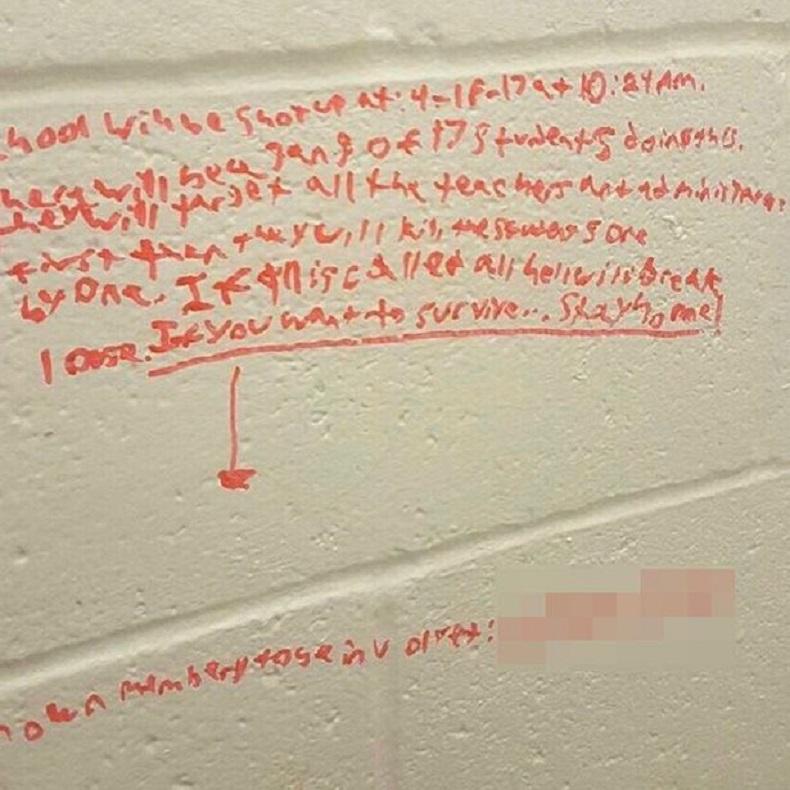 hool will be shot up at: 4-18-17 at 10:24 AM.
here will be a gang of 17 students doing this.
they will target all the teachers and
first then they will kill the students one
by one. If this called all hell will break
lose. If you want to survive... Stay home!
nown members to be involved: